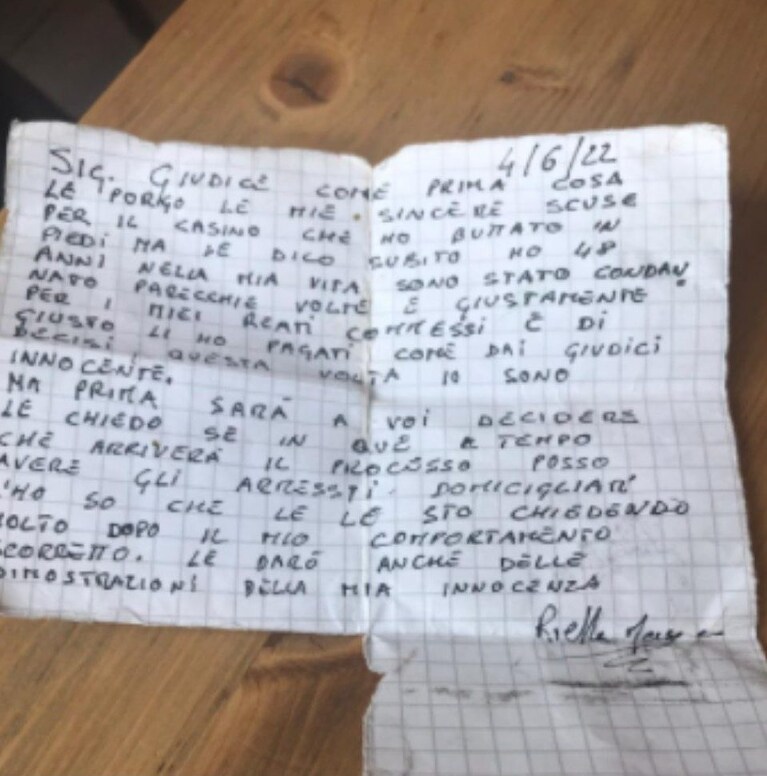 4/6/22
SIG. GIUDICE COME PRIMA COSA
LE PORGO LE MIE SINCERE SCUSE
PER IL CASINO CHE HO BUTTATO IN
PIEDI MA LE DICO SUBITO HO 48
ANNI NELLA MIA VITA SONO STATO CONDAN
NATO PARECCHIE VOLTE E GIUSTAMENTE
PER I MIEI REATI COMMESSI E DI
GIUSTO LI HO PAGATI COME DAI GIUDICI
DECISI. QUESTA VOLTA IO SONO
INNOCENTE.
MA PRIMA SARÀ A VOI DECIDERE
LE CHIEDO SE IN QUE TEMPO
CHE ARRIVERÀ IL PROCESSO POSSO
AVERE GLI ARRESSTI DOMICIGLIARI
L'HO SO CHE LE LE STO CHIEDENDO
MOLTO DOPO IL MIO COMPORTAMENTO
SCORRETTO. LE DARÒ ANCHE DELLE
DIMOSTRAZIONI DELLA MIA INNOCENZA